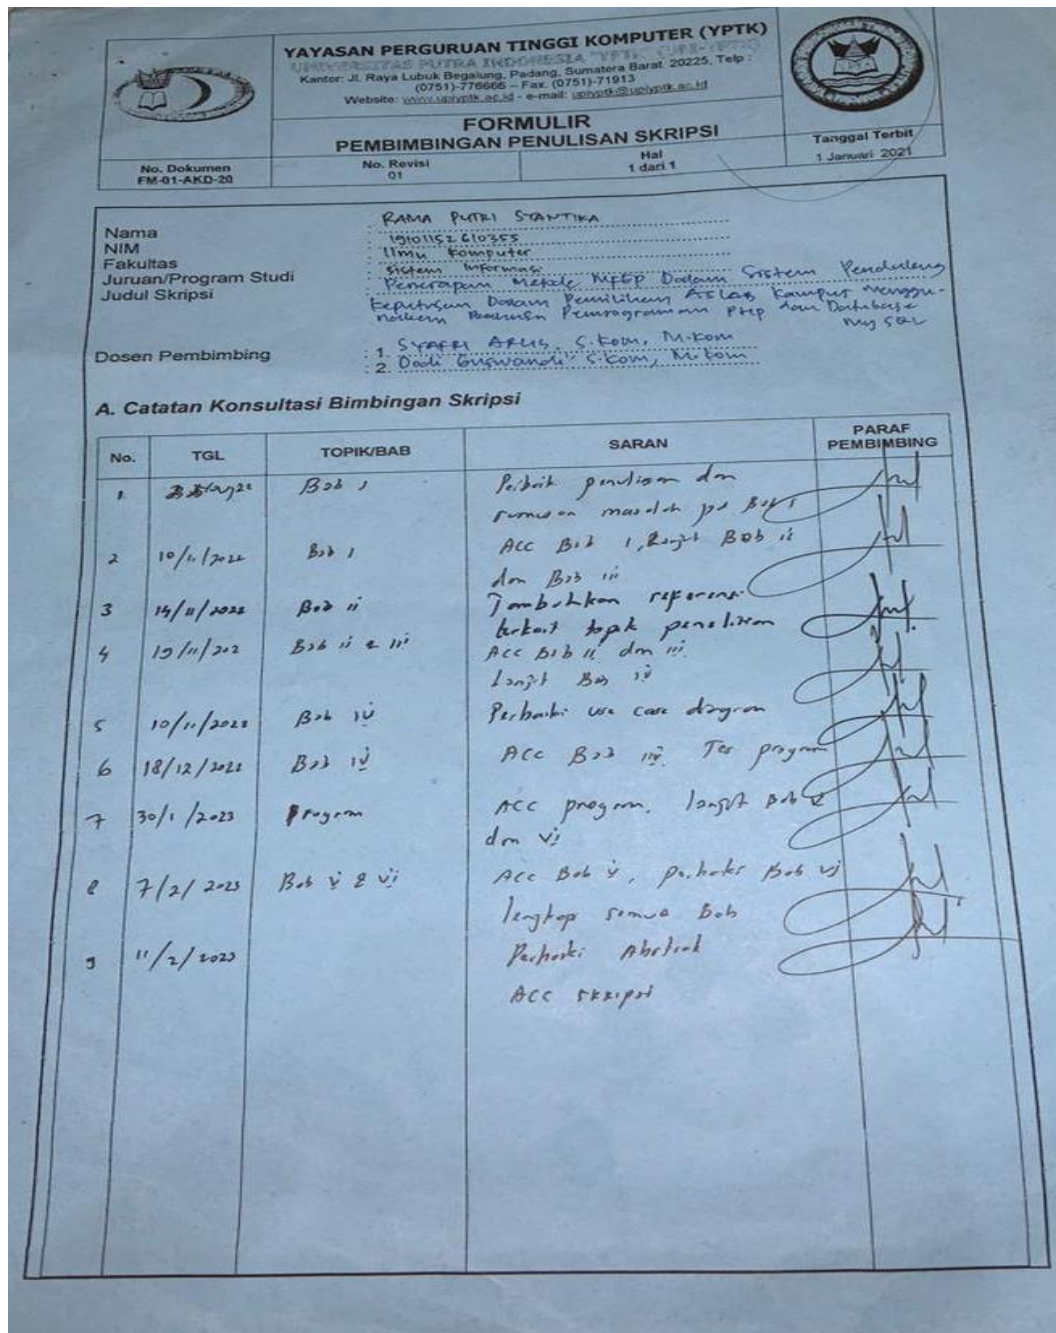 YAYASAN PERGURUAN TINGGI KOMPUTER (YPTK)
UNIVERSITAS PUTRA INDONESIA "YPTK" (UPI-YPTK)
Kantor: Jl. Raya Lubuk Begalung, Padang, Sumatera Barat 20225, Telp :
(0751)-776666 – Fax. (0751)-71913
Website: www.upiyptk.ac.id - e-mail: upiyptk@upiyptk.ac.id
FORMULIR
PEMBIMBINGAN PENULISAN SKRIPSI
Tanggal Terbit
1 Januari 2021
No. Dokumen
FM-01-AKD-20
No. Revisi
01
Hal
1 dari 1
Nama : RAMA PUTRI SYANTIKA
NIM : 19101152610355
Fakultas : Ilmu Komputer
Juruan/Program Studi : Sistem Informasi
Judul Skripsi : Penerapan Metode MFEP Dalam Sistem Pendukung
Keputusan Dalam Pemilihan ASLAB Kampus Menggu-
nakan Bahasa Pemrograman PHP dan Database
My SQL
Dosen Pembimbing : 1. SYAFRI ARLIS, S.Kom, M.Kom
2. Dodi Guswandi S.Kom, M.Kom
A. Catatan Konsultasi Bimbingan Skripsi
No. TGL TOPIK/BAB SARAN PARAF PEMBIMBING
1. Bab I Perbaiki penulisan dan
rumusan masalah Bab I
2 Bab I ACC Bab I, Lanjut Bab ii
dan Bab iii
3 14/11/2022 Bab ii Tambahkan referensi
terkait topik penelitian
4 19/11/202 Bab ii & iii ACC Bab ii dan iii
Lanjut Bab iv
5 Bab iv Perbaiki use case diagram
6 18/12/2022 Bab iv ACC Bab program
7 30/1/2023 Program ACC program. lanjut Bab V
dan Vi
8 7/2/2023 Bab V & Vi ACC Bab V, perbaiki Bab Vi
lengkap semua Bab
9 11/2/2023 Perbaiki Abstrak
ACC skripsi